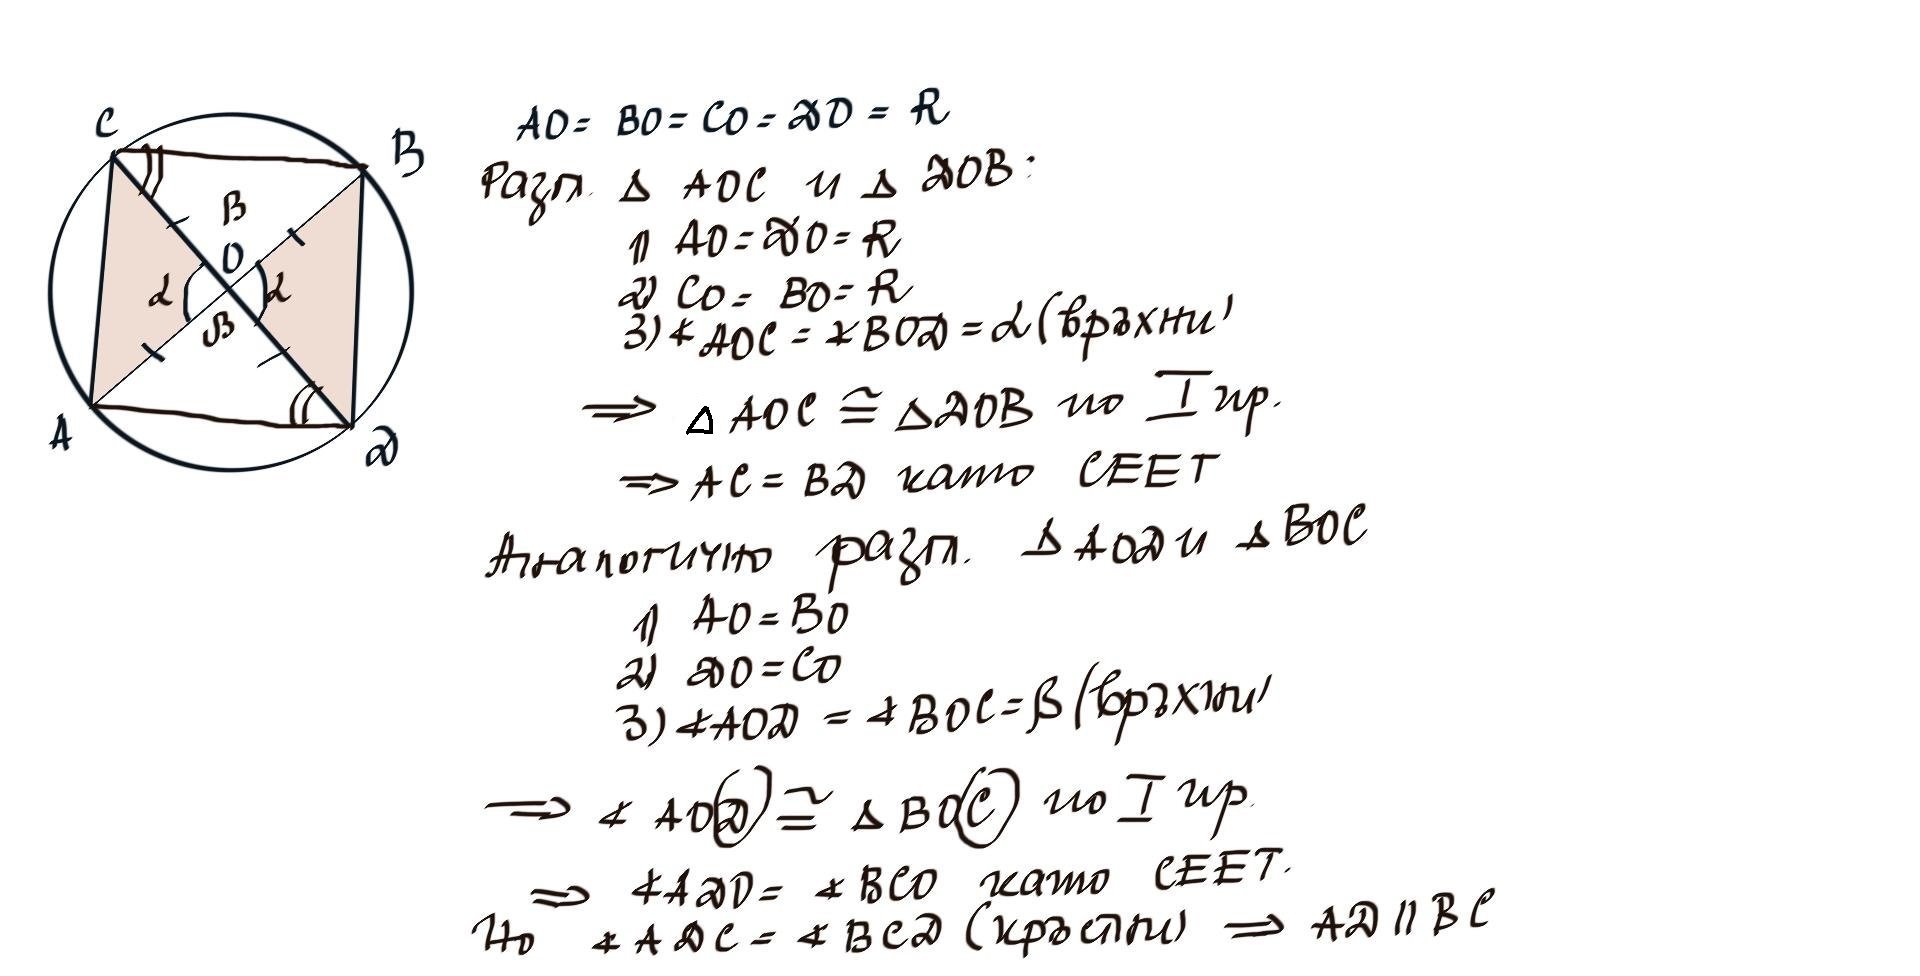 C
B
β
O
α
α
β
A
D
AO = BO = CO = DO = R
Разгл. Δ AOC и Δ DOB:
1) AO = DO = R
2) CO = BO = R
3) ∢ AOC = ∢ BOD = α (връхни)
⇒ Δ AOC ≅ Δ DOB по I пр.
⇒ AC = BD като СЕЕТ
Аналогично разгл. Δ AOD и Δ BOC
1) AO = BO
2) DO = CO
3) ∢ AOD = ∢ BOC = β (връхни)
⇒ ∢ AOD ≅ Δ BOC по I пр.
⇒ ∢ ADO = ∢ BCO като СЕЕТ.
Но ∢ ADC = ∢ BCD (кръстни) ⇒ AD || BC